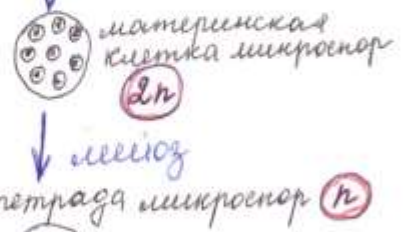 материнская
клетка микроспор
2n
мейоз
тетрада микроспор n